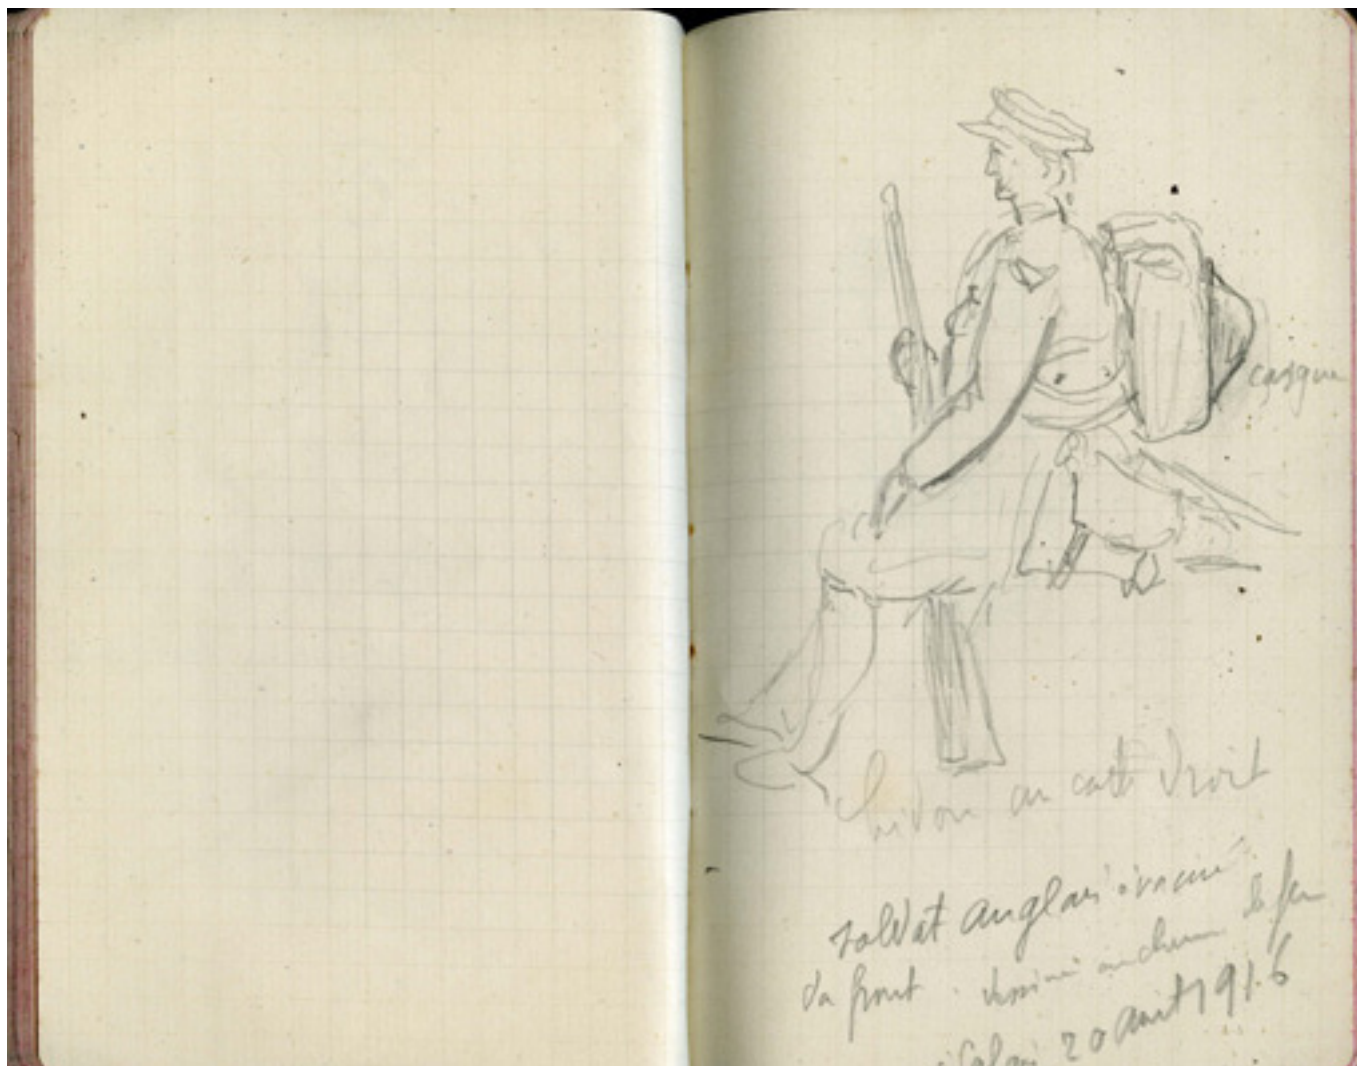 casque
bidon au coté droit
soldat anglais évacué
du front. dessiné au chemin de fer
à Calais 20 août 1916